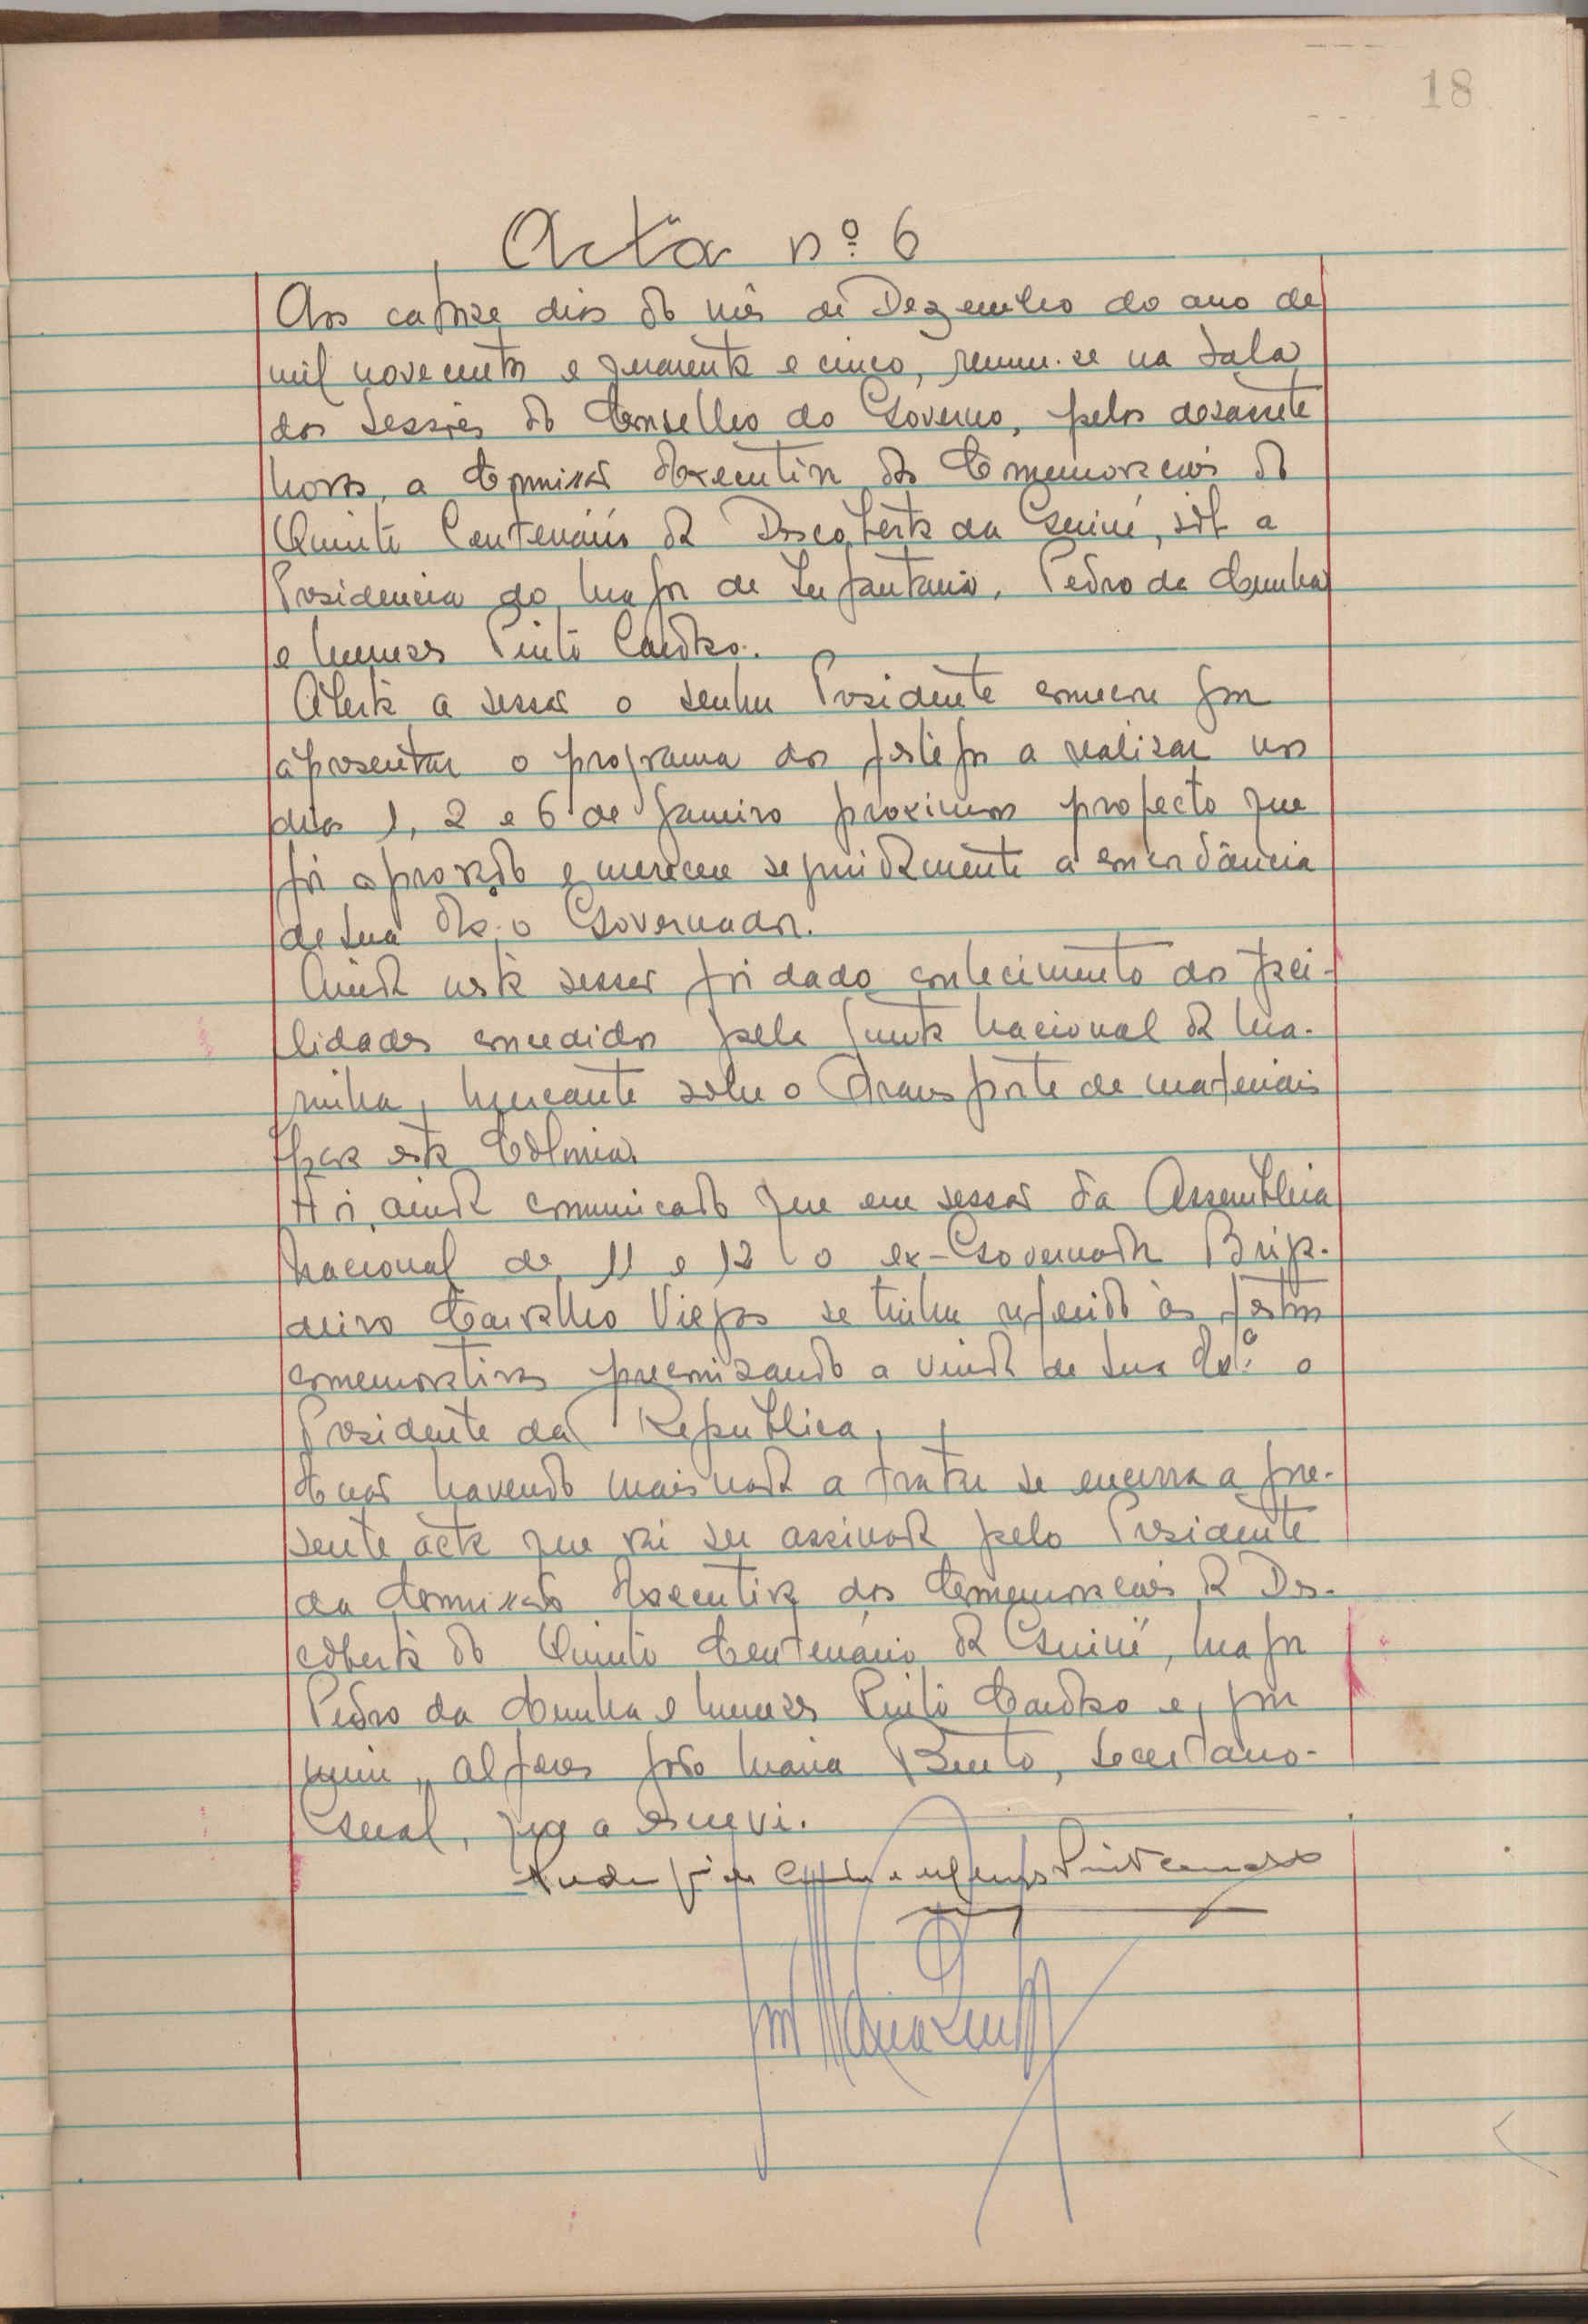 18
Acta nº 6
Aos catorze dias do mês de Dezembro do ano de
mil novecentos e quarenta e cinco, reuniu-se na Sala
das Sessões do Conselho do Governo, pelas dezassete
horas, a Comissão Executiva das Comemorações do
Quinto Centenário da Descoberta da Guiné, sob a
Presidencia do Major de Infantaria, Pedro da Cunha
e Menezes Pinto Cardoso.
Aberta a sessão o senhor Presidente começou por
apresentar o programa dos festejos a realizar nos
dias 1, 2 e 6 de Janeiro proximos projecto que
foi aprovado e mereceu seguidamente a concordância
de Sua Exª. o Governador.
Ainda nesta sessão foi dado conhecimento das faci-
lidades concedidas pela Junta Nacional da Ma-
rinha, Mercante sobre o transporte de materiais
para esta Colónia.
Foi, ainda comunicado que em sessão da Assembleia
Nacional de 11 e 12 o ex-Governador Briga-
deiro Carvalho Viegas se tinha referido às festas
comemorativas preconizando a vinda de Sua Exª. o
Presidente da Republica.
E não havendo mais nada a tratar se encerra a pre-
sente acta que vai ser assinada pelo Presidente
da Comissão Executiva das Comemorações da Des-
coberta do Quinto Centenário da Guiné, Major
Pedro da Cunha e Menezes Pinto Cardoso e, por
mim, alferes João Maria Bento, Secretario-
Geral, que a escrevi.
Pinto Cardoso